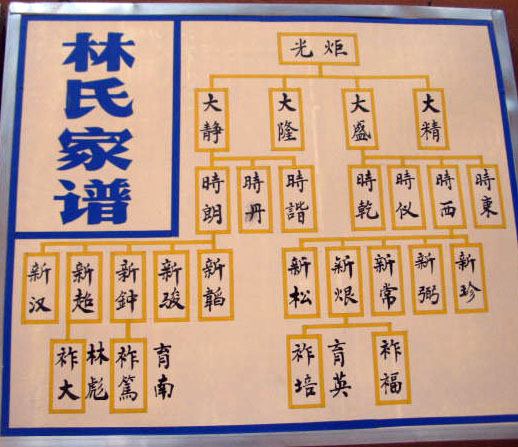 林氏家谱
光炬
大静
大隆
大盛
大精
時朗
時丹
時諧
時乾
時仪
時西
時東
新汉
新超
新鈡
新骏
新韜
新松
新烺
新常
新弼
新珍
祚大
林彪
祚篤
育南
祚培
育英
祚福